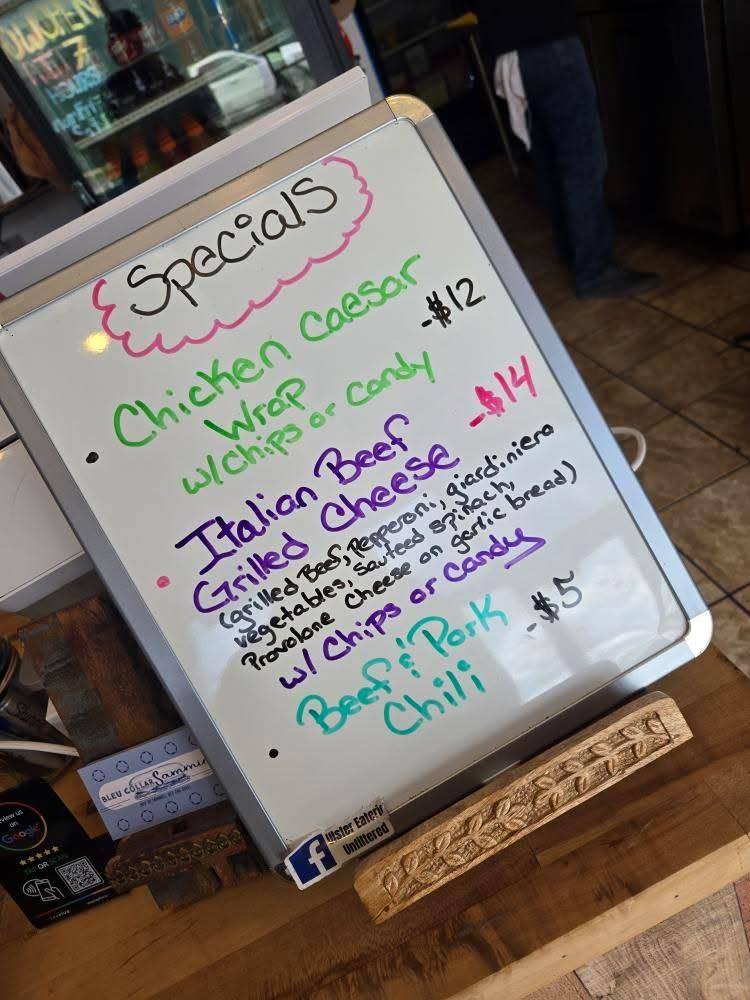 Specials
Chicken Caesar
Wrap
w/chips or candy
-$12
Italian Beef
Grilled Cheese
-$14
(grilled Beef, Pepperoni, giardiniera
vegetables, Sauteed spinach,
Provolone cheese on garlic bread)
w/ Chips or Candy
Beef & Pork
Chili
-$5
BLEU COLLAR Sammi
view us
on
Google
TAP OR SCAN
f
Ulster Eatery
Unfiltered